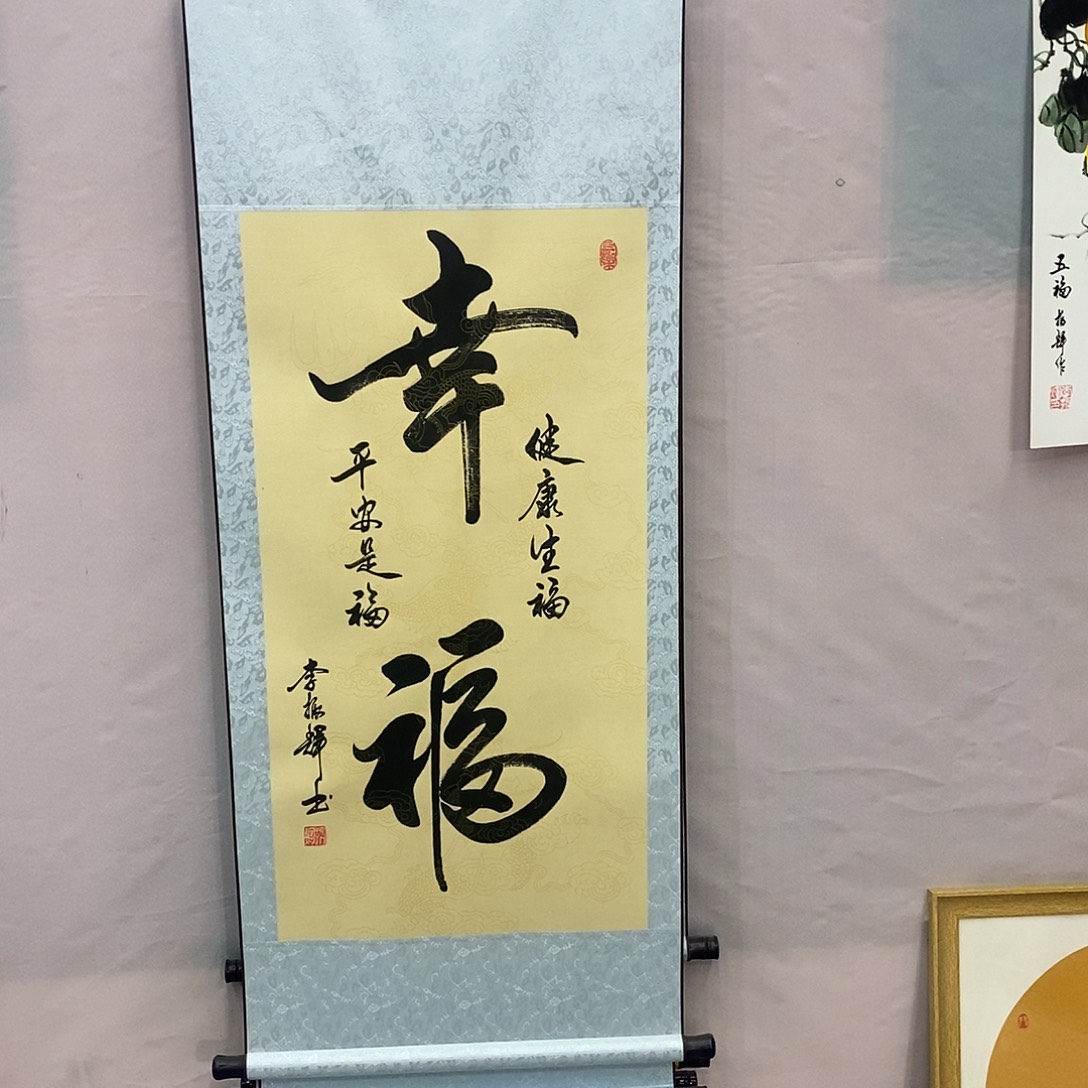 幸福
健康生福
平安是福
李振辉书
五福 振辉作